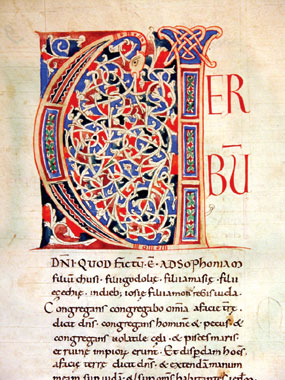 VER
BŪ
DN̄I·QUOD FACTŪ·Ē·AD SOPHONIAM
filiū chusi·filii godolię·filii amasię·filii
ezechię·in dieb; iosię·filii amon regis iuda·
Congregans congregabo omia a facie terrę·
dicit dns̄·congregans hominē & pecus·&
congregans volatile cęli·& pisces maris·
et ruinę impior erunt· Et disp̄dam hoēs
a facie terrę· dicit dn̄s·& extendam manum
meam sup iudā·& sup om̄s habitantes